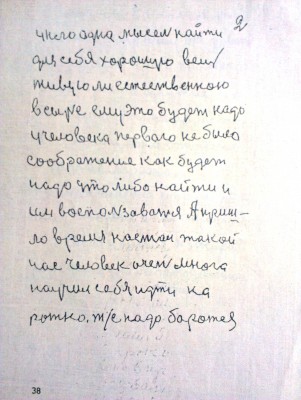 2
у него одна мысел найти
для себя хорошую вещ
живую ли естественною
всыре ему это будет надо
у человека первого не было
соображение как будет
надо что либо найти и
им восползаватя А приш-
ло время настал такой
час человек очен много
научил себя идти ка
ротко. т/е надо баротся
38